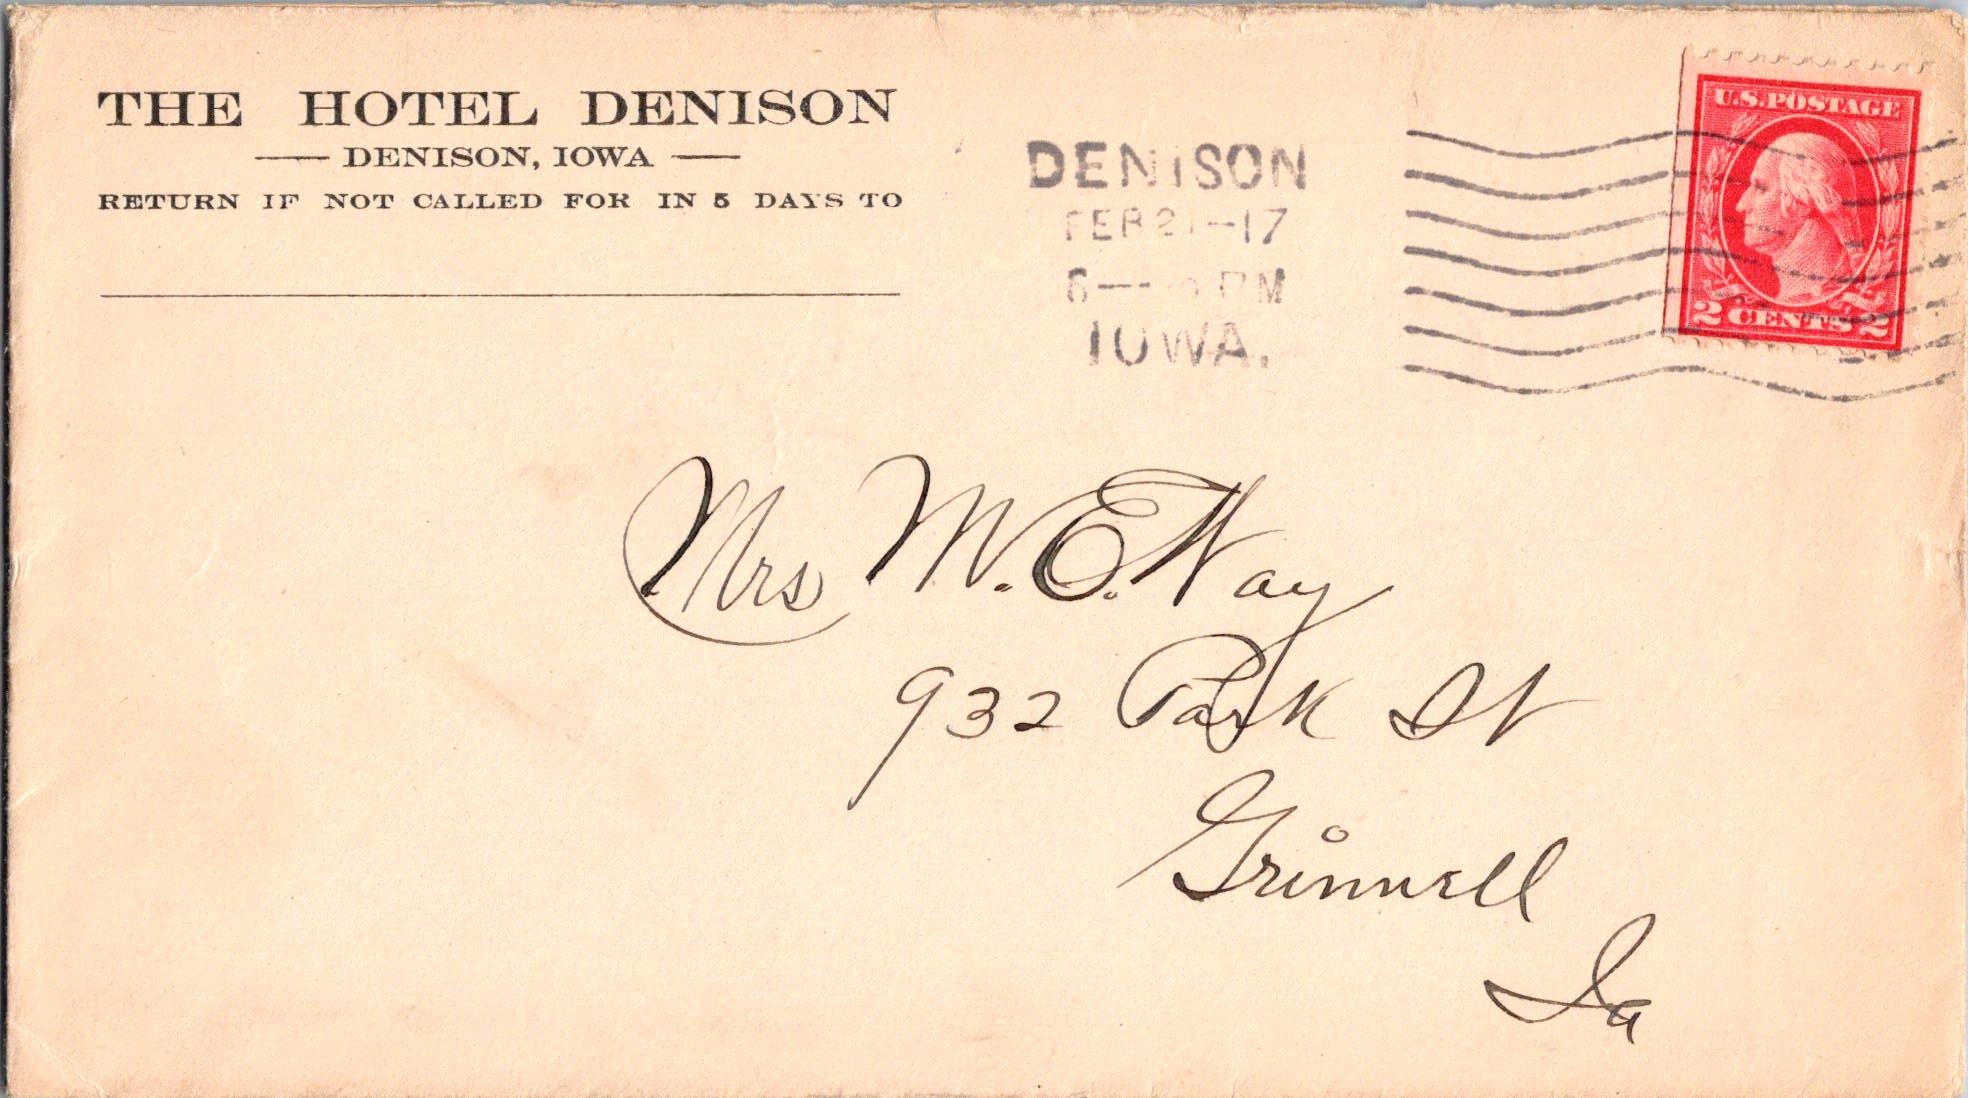 THE HOTEL DENISON
DENISON, IOWA
RETURN IF NOT CALLED FOR IN 5 DAYS TO
DENISON
FEB 21-17
PM
IOWA.
U.S. POSTAGE
2 CENTS 2
Mrs M. E. Way
932 Park St
Grinnell
Ia